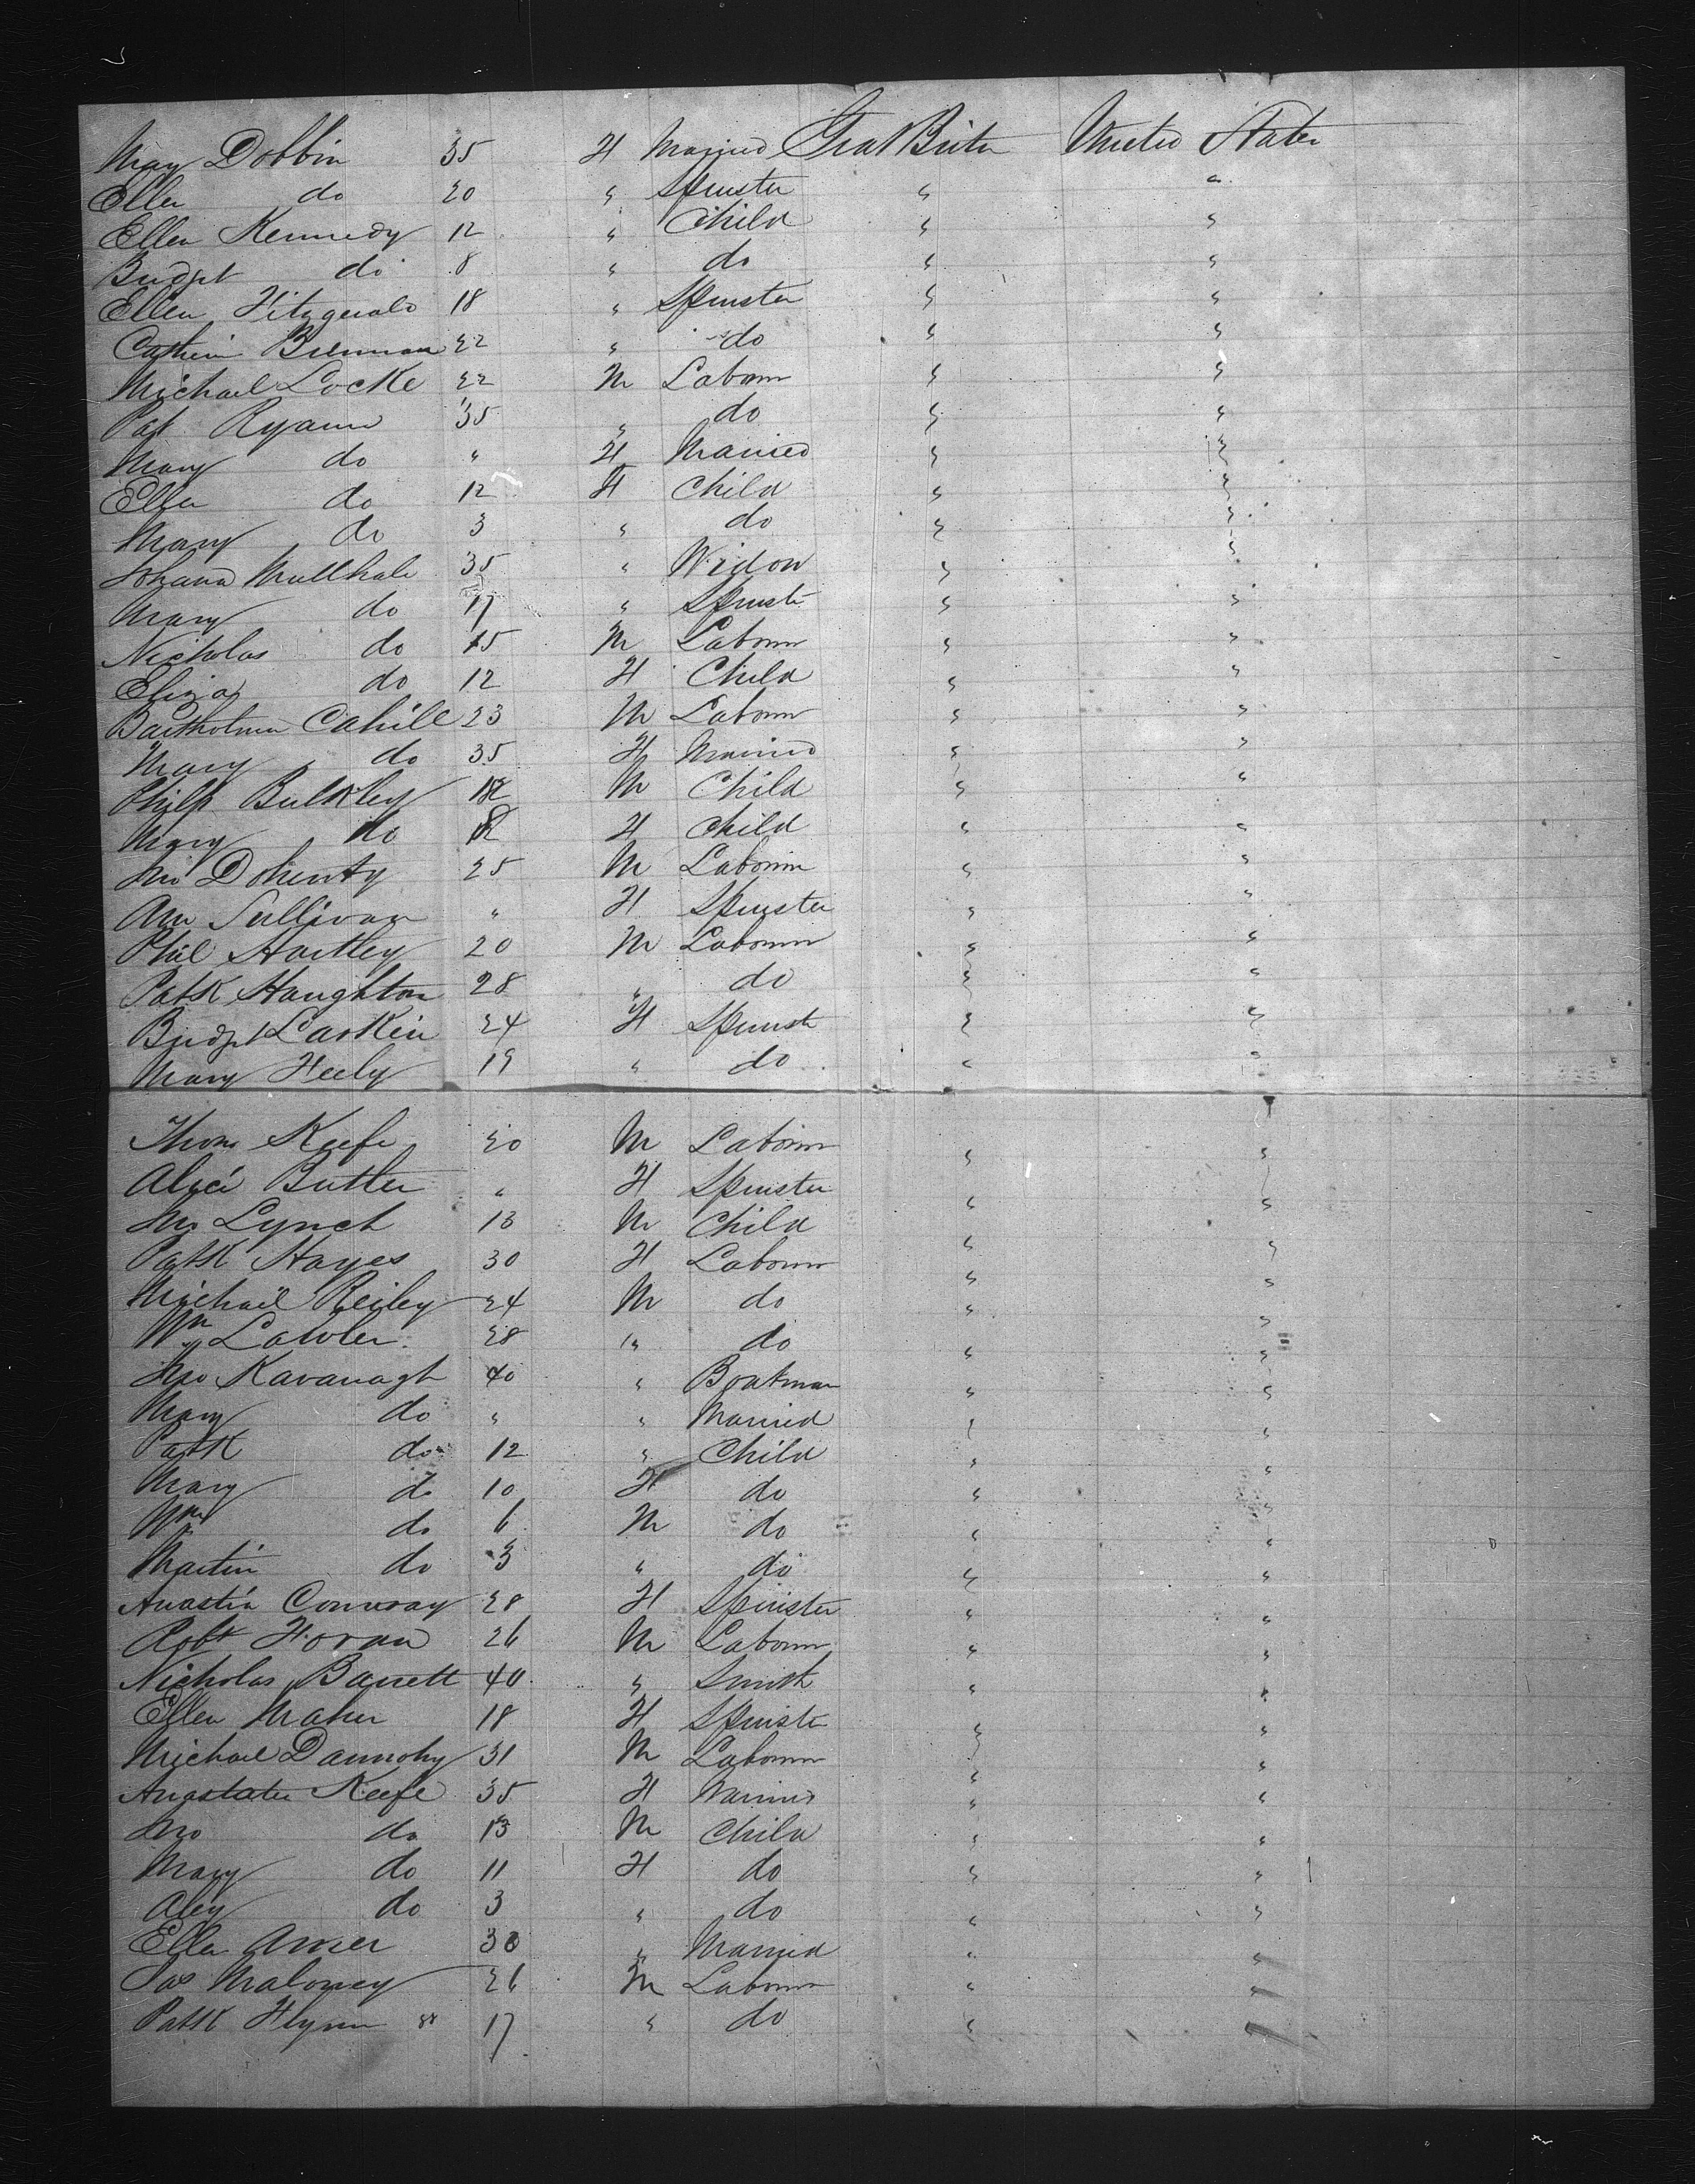 Mary Dobbin 35 F Married Great Britn United States
Ellen do 20 " Spinster " "
Ellen Kennedy 12 " Child " "
Bridgt do 8 " do " "
Ellen Fitzgerald 18 " Spinster " "
Catherin Brennan 22 " do " "
Michael Locke 22 M Laborer " "
Pat Ryann 35 " do " "
Mary do " F Married " "
Ellen do 12 F Child " "
Mary do 3 " do " "
Johana Mullhale 35 " Widow " "
Mary do 17 " Spinstr " "
Nicholas do 15 M Laborer " "
Eliza do 12 F Child " "
Bartholmew Cahill 23 M Laborer " "
Mary do 35 F Married " "
Philp Bulkley 12 M Child " "
Mary do F Child " "
Jno Dohenty 25 M Laborer " "
Ann Sullivan " F Spinster " "
Phil Hartley 20 M Laborer " "
Patk Haughton 28 " do " "
Bridgt Larkin 24 F Spinstr " "
Mary Heely 19 " do " "
Thom Keefe 20 M Laborer " "
Alice Butler " F Spinster " "
Jno Lynch 13 M Child " "
Patk Hayes 30 F Laborer " "
Michael Reiley 24 M do " "
Wm Lawler 28 " do " "
Jno Kavanagh 40 " Boatman " "
Mary do " " Married " "
Patk do 12 " Child " "
Mary do 10 F do " "
Wm do 6 M do " "
Martin do 3 " do " "
Anastia Conway 28 F Spinster " "
Robt Horan 26 M Laborer " "
Nicholas Barrett 40 " Smith " "
Ellen Maher 18 F Spinstr " "
Michael Dannohy 31 M Laborer " "
Anastatia Keefe 35 F Married " "
Jno do 13 M Child " "
Mary do 11 F do " "
Aley do 3 " do " "
Ellen 30 " Married " "
Jas Maloney 26 M Laborer " "
Patk Flynn 17 " do " "